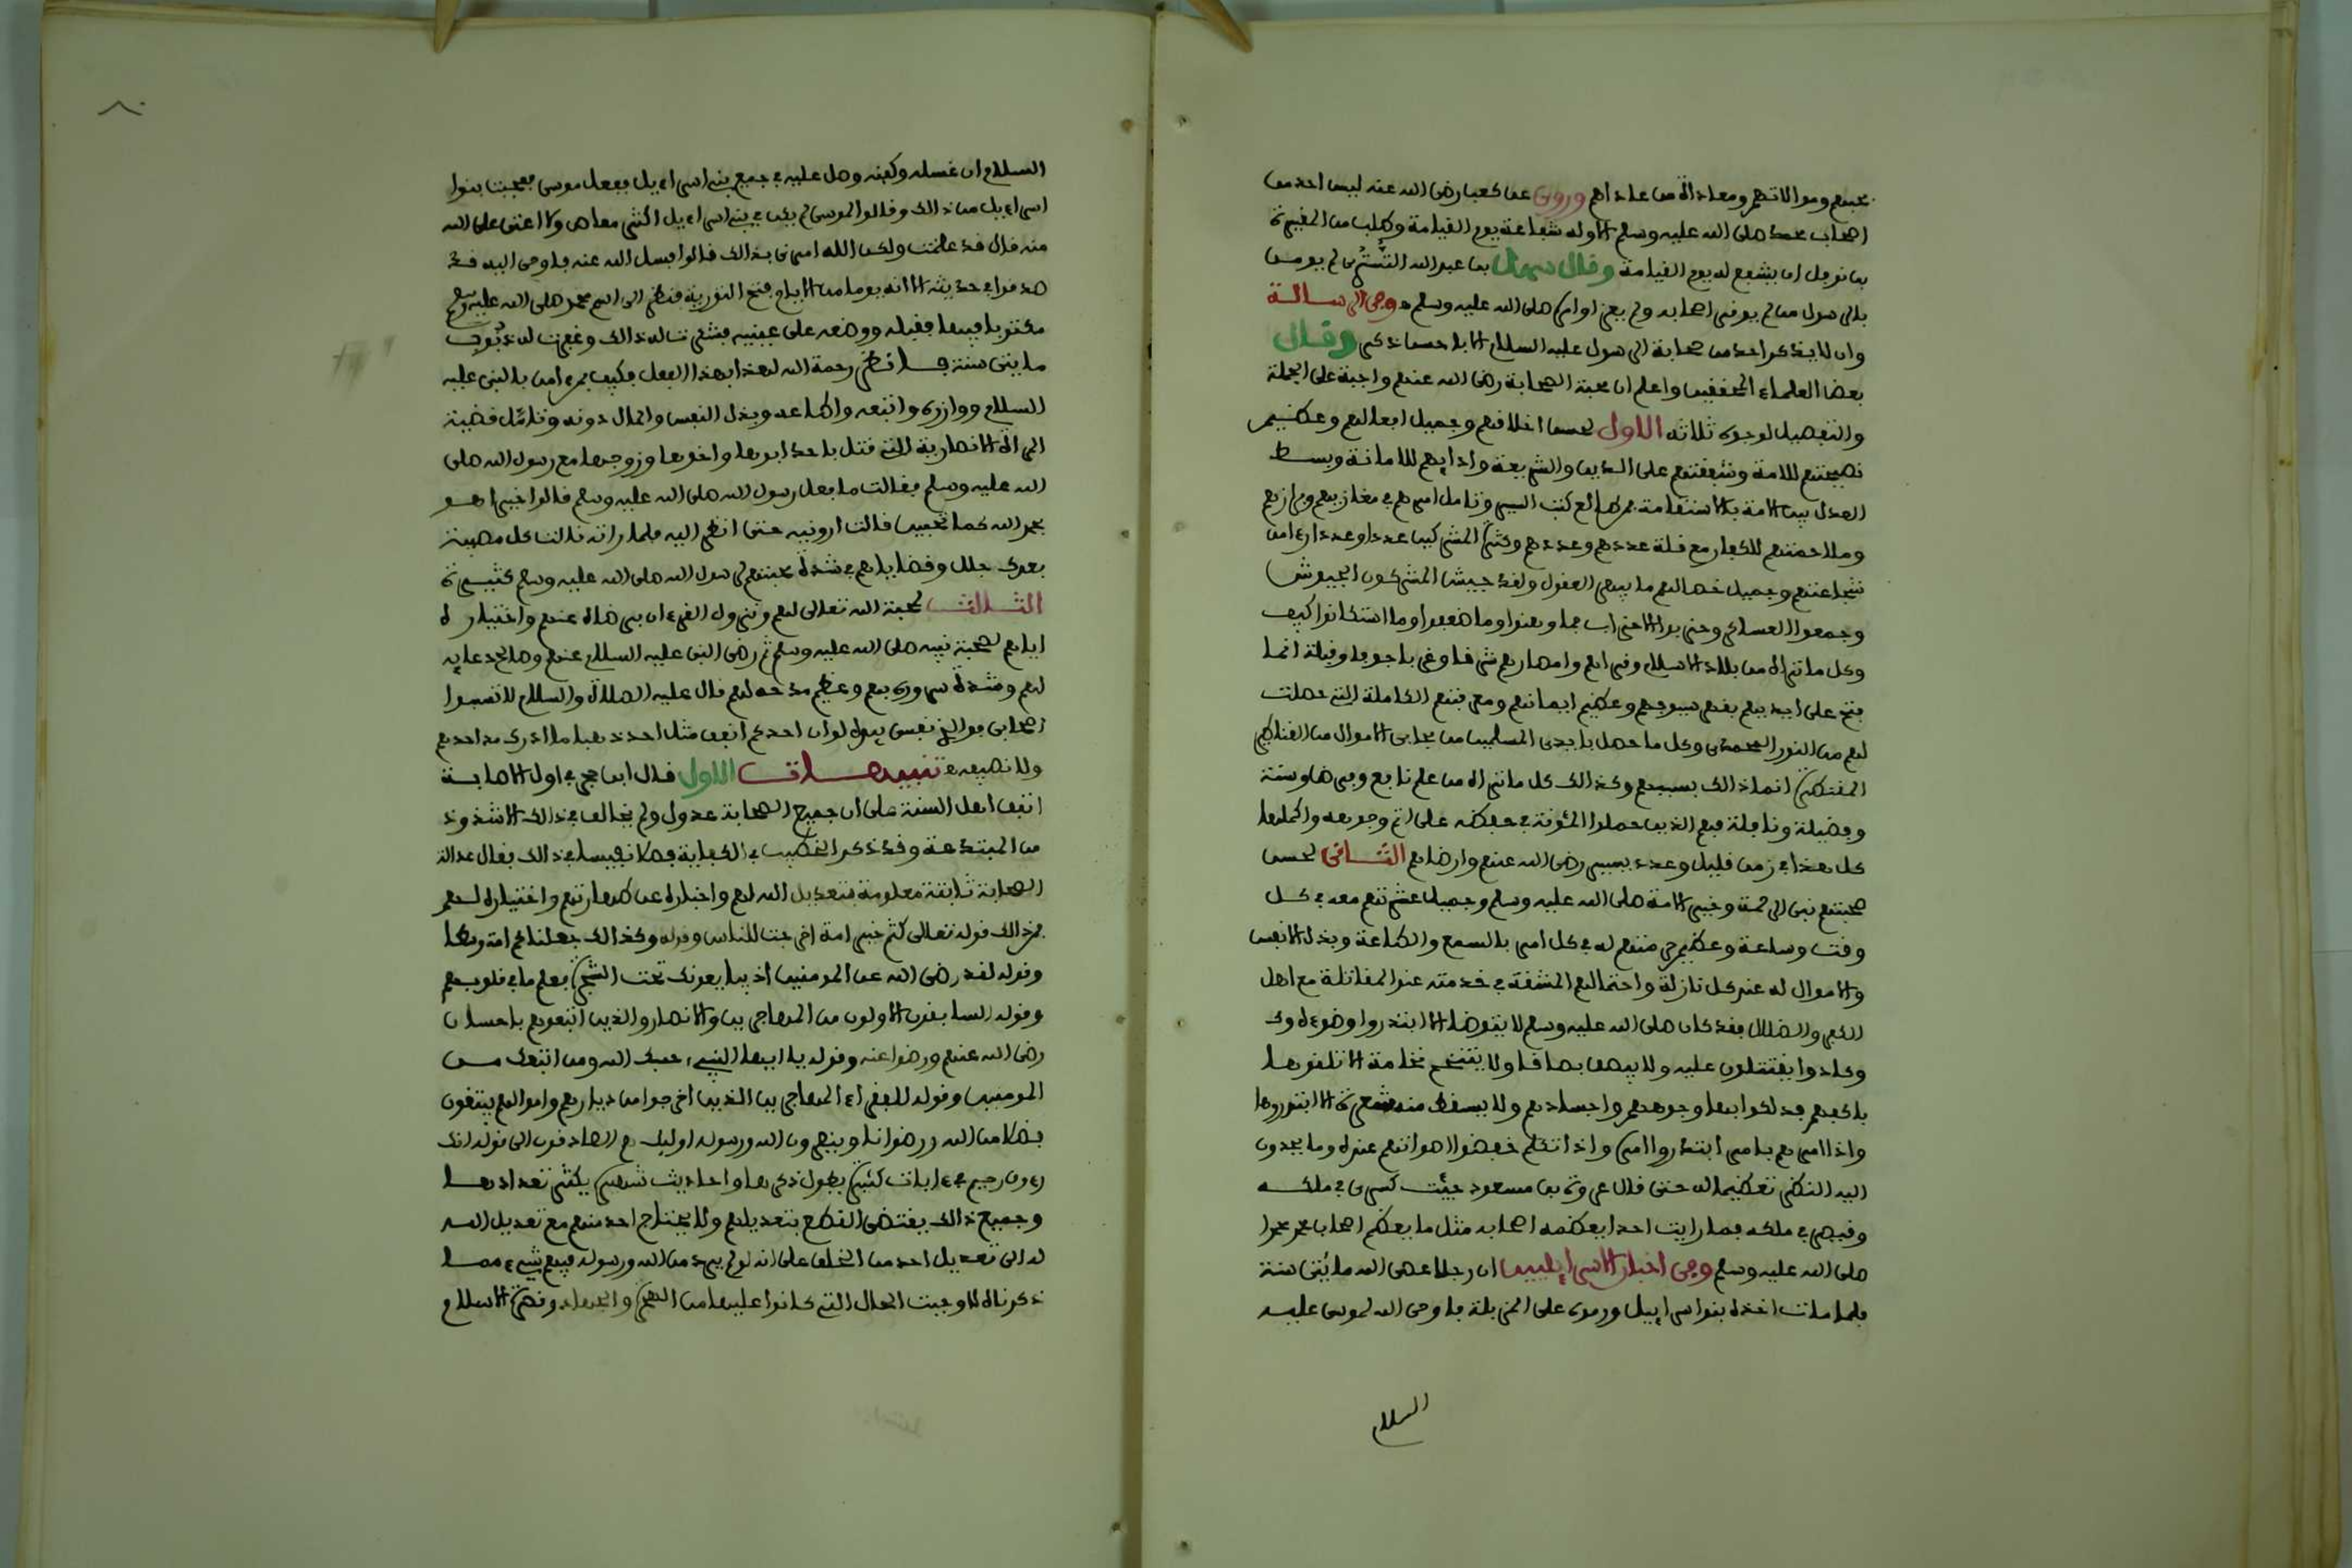 محبتهم وموالاتهم ومعاداة من عاداهم وروي عن كعب رضي الله عنه ليس احد من
اصحاب محمد صلى الله عليه وسلم الا وله شفاعة يوم القيامة وطلب من المغيرة
بن نوفل ان يشفع له يوم القيامة وقال سهل بن عبد الله التستري لم يومن
بالرسول من لم يوقر اصحابه ولم يعز اوامره صلى الله عليه وسلم وفي الرسالة
وان لا يذكر احد من صحابة الرسول عليه السلام الا باحسن ذكر وقال
بعض العلماء المحققين واعلم ان محبة الصحابة رضي الله عنهم واجبة على الجملة
والتفصيل لوجوه ثلاثة الاول لحسن اخلاقهم وجميل افعالهم وعظيم
نصيحتهم للامة وشفقتهم على الدين والشريعة وادايهم للامانة وبسط
العدل بين الامة بالاستقامة فمن طالع كتب السير وتامل امرهم في مغازيهم
وملاحمتهم للكفار مع قلة عددهم وعددهم وكثرة المشركين عددا وعددا راى من
شجاعتهم وجميل خصالهم ما يبهر العقول ولقد جيش المشركون الجيوش
وجمعوا العساكر وحزبوا الاحزاب فما وهنوا وما ضعفوا وما استكانوا كيف
وكل ما تراه من بلاد الاسلام وقراهم وامصارهم شرقا وغربا جوبا وقبلة انما
فتح على ايديهم بفضل سيوفهم وعظيم ايمانهم ومعرفتهم الكاملة التي حصلت
لهم من النور المحمدي وكل ما حصل بايدي المسلمين من الاموال من القناطير
المقنطرة انما ذالك بسببهم وكذالك كل ما تراه من علم نافع وفرض وسنة
وفضيلة ونافلة فهم الذين حملوا المئونة في حفظه على اتم وجوهه واكملها
كل هذا في زمن قليل وعدد يسير رضي الله عنهم وارضاهم الثاني لحسن
صحبتهم نبي الرحمة وخير الامة صلى الله عليه وسلم وجميل عشرتهم معه في كل
وقت وساعة وعظيم حرمتهم له في كل امر بالسمع والطاعة وبذل الانفس
والاموال له عند كل نازلة واحتمالهم المشقة في خدمته عند المقاتلة مع اهل
الكفر والضلال فقد كان صلى الله عليه وسلم لا يتوضا الا ابتدروا وضوءه و
وكادوا يقتتلون عليه ولا يبصق بصاقا ولا يتنخم نخامة الا تلقوها
باكفهم فدلكوا بها وجوههم واجسادهم ولا يسقط منه شعرة الا ابتدروها
واذا امرهم بامر ابتدروا امره واذا تكلم خفضوا اصواتهم عنده وما يحدون
اليه النظر تعظيما له حتى قال عروة بن مسعود جيئت كسرى في ملكه
وقيصر في ملكه فما رايت احدا يعظمه اصحابه مثل ما يعظم اصحاب محمد محمدا
صلى الله عليه وسلم وفي اخبار الاسرايليين ان رجلا عصى الله مايتى سنة
فلما مات اخذه بنوا اسراييل ورموه على المزبلة فاوحى الله لموسى عليه
السلام
٨٠
السلام ان غسله وكفنه وصل عليه في جمع بني اسراءيل ففعل موسى فعجبت بنوا
اسراءيل من ذالك وقالوا لموسى لم يكن في بني اسراءيل اكثر معاص ولا اعتى على الله
منه قال قد علمت ولكن الله امرني بذالك قالوا فسل الله عنه فاوحى اليه قد
صدقوا في حديثه الا انه يوما من الايام فتح التورية فنظر الى اسم محمد صلى الله عليه وسلم
مكتوبا فيها فقبله ووضعه على عينيه فشكرت له ذالك وغفرت له ذنوب
مايتى سنة فانظر رحمة الله لهذا بهذا الفعل فكيف بمن امن بالنبي عليه
السلام ووازره واتبعه واطاعه وبذل النفس والمال دونه وتامل قضية
المراة الانصارية التي قتل باحد ابوها واخوها وزوجها مع رسول الله صلى
الله عليه وسلم فقالت ما فعل رسول الله صلى الله عليه وسلم قالوا خيرا هو
بحمد الله كما تحبين قالت ارونيه حتى انظر اليه فلما راته قالت كل مصيبة
بعدك جلل وقضاياهم في شدة محبتهم لرسول الله صلى الله عليه وسلم كثيرة
الثالث لمحبة الله تعالى لهم ونزول القرءان برضاه عنهم واختياره
اياهم لصحبة نبيه صلى الله عليه وسلم ثم رضى النبي عليه السلام عنهم وصالح دعايه
لهم وشدة سروره بهم وعظيم مدحه لهم قال عليه الصلاة والسلام لا تسبوا
اصحابي فوالذي نفسي بيده لو ان احدكم انفق مثل احد ذهبا ما ادرك مد احدهم
ولا نصيفه تنبيهات الاول قال ابن حجر في اول الاصابة
اتفق اهل السنة على ان جميع الصحابة عدول ولم يخالف في ذالك الا شذوذ
من المبتدعة وقد ذكر الخطيب في الكفاية فصلا نفيسا في ذالك فقال عدالة
الصحابة ثابتة معلومة بتعديل الله لهم واخباره عن طهارتهم واختياره لهم
فمن ذالك قوله تعالى كنتم خير امة اخرجت للناس وقوله وكذالك جعلناكم امة وسطا
وقوله لقد رضي الله عن المومنين اذ يبايعونك تحت الشجرة فعلم ما في قلوبهم
وقوله السابقون الاولون من المهاجرين والانصار والذين اتبعوهم باحسان
رضي الله عنهم ورضوا عنه وقوله يا ايها النبيء حسبك الله ومن اتبعك من
المومنين وقوله للفقراء المهاجرين الذين اخرجوا من ديارهم واموالهم يبتغون
فضلا من الله ورضوانا وينصرون الله ورسوله اوليك هم الصادقون الى قوله انك
رءوف رحيم في ءايات كثيرة يطول ذكرها واحاديث شهيرة يكثر تعدادها
وجميع ذالك يقتضي القطع بتعديلهم ولا يحتاج احد منهم مع تعديل الله
له الى تعديل احد من الخلق على انه لو لم يرد من الله ورسوله فيهم شيء مما
ذكرناه لاوجبت الحال التي كانوا عليها من الهجرة والجهاد ونصرة الاسلام